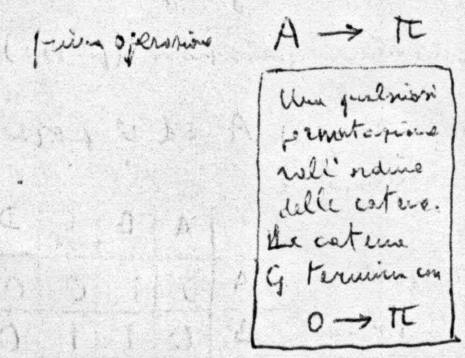 prima operazione A → π
Una qualsiasi
permutazione
nell'ordine
delle catene.
La catena
G termina con
0 → π